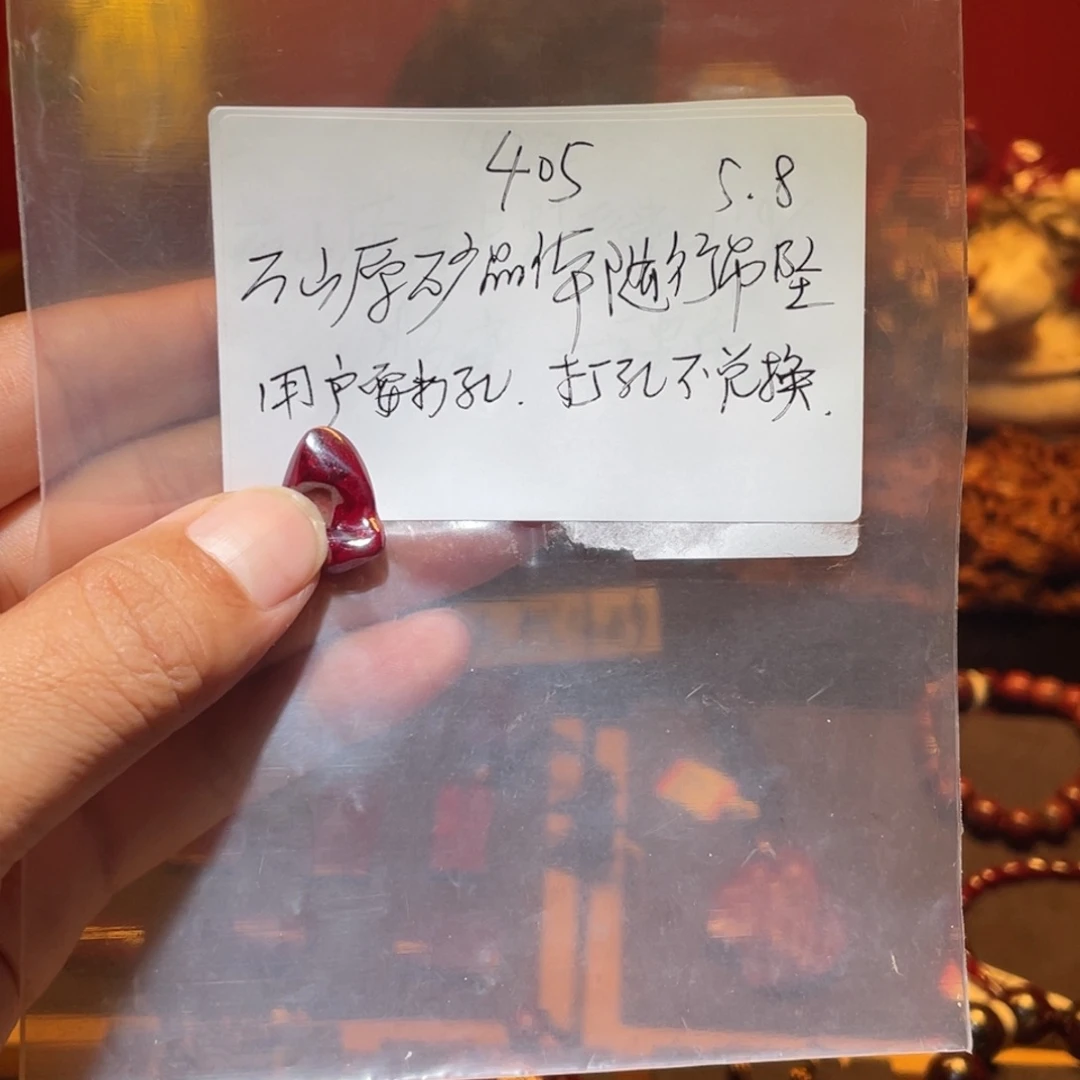 405 5.8
万山原矿晶体随行吊坠
用户要打孔. 打孔不兑换.